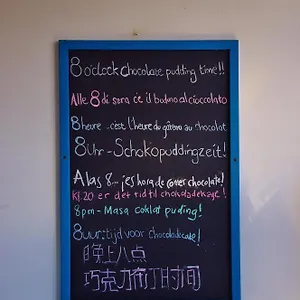 8 o'clock chocolate pudding time!!
Alle 8 di sera c'è il budino al cioccolato
8 heure...c'est l'heure du gâteau au chocolat
8 Uhr - Schokopuddingzeit!
A las 8... ¡es hora de comer chocolate!
Kl 20 er det tid til chokoladekage!
8pm - Masa coklat puding!
8 uur: tijd voor chocoladecake!
晚上八点
巧克力布丁时间